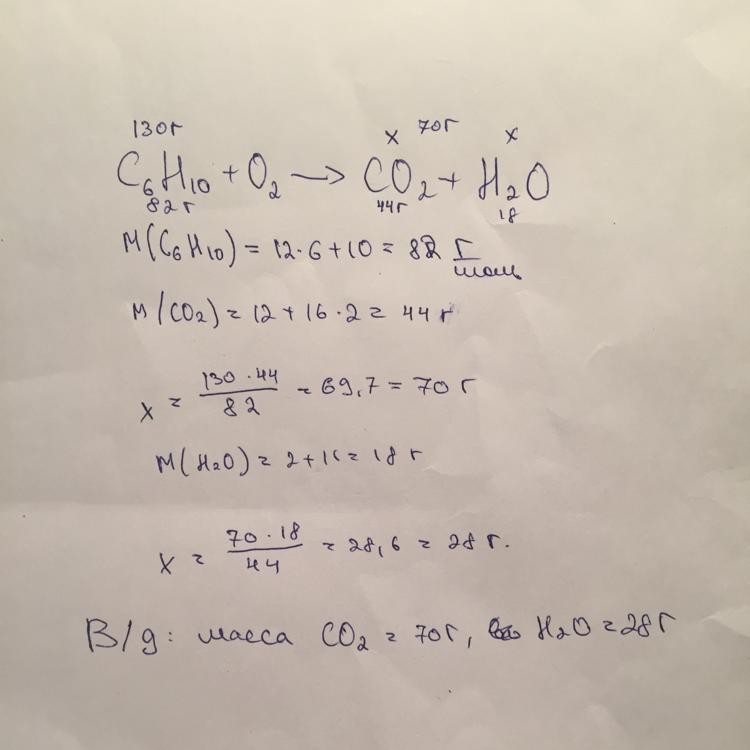 130г x 70г x
C₆H₁₀ + O₂ → CO₂ + H₂O
82г 44г 18
M(C₆H₁₀) = 12·6+10 = 82 г/моль
M(CO₂) = 12 + 16·2 = 44 г
x = 130·44/82 = 69,7 = 70 г
M(H₂O) = 2+16 = 18 г
x = 70·18/44 = 28,6 = 28 г.
В/д: масса CO₂ = 70г, H₂O = 28г